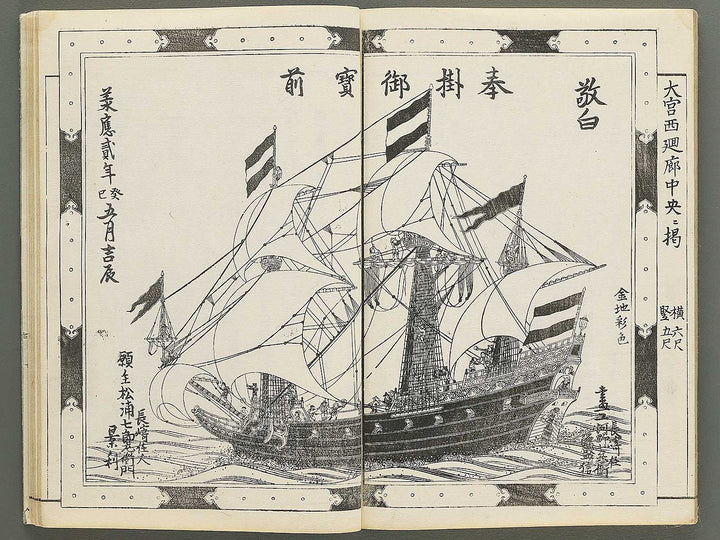 大宮西廻廊中央ニ掲
横六尺
竪五尺
金地彩色
敬白
奉掛御寶前
畫工
長崎住
承應貳年癸巳五月吉辰
長崎住人
願主松浦七郎衛門
景利